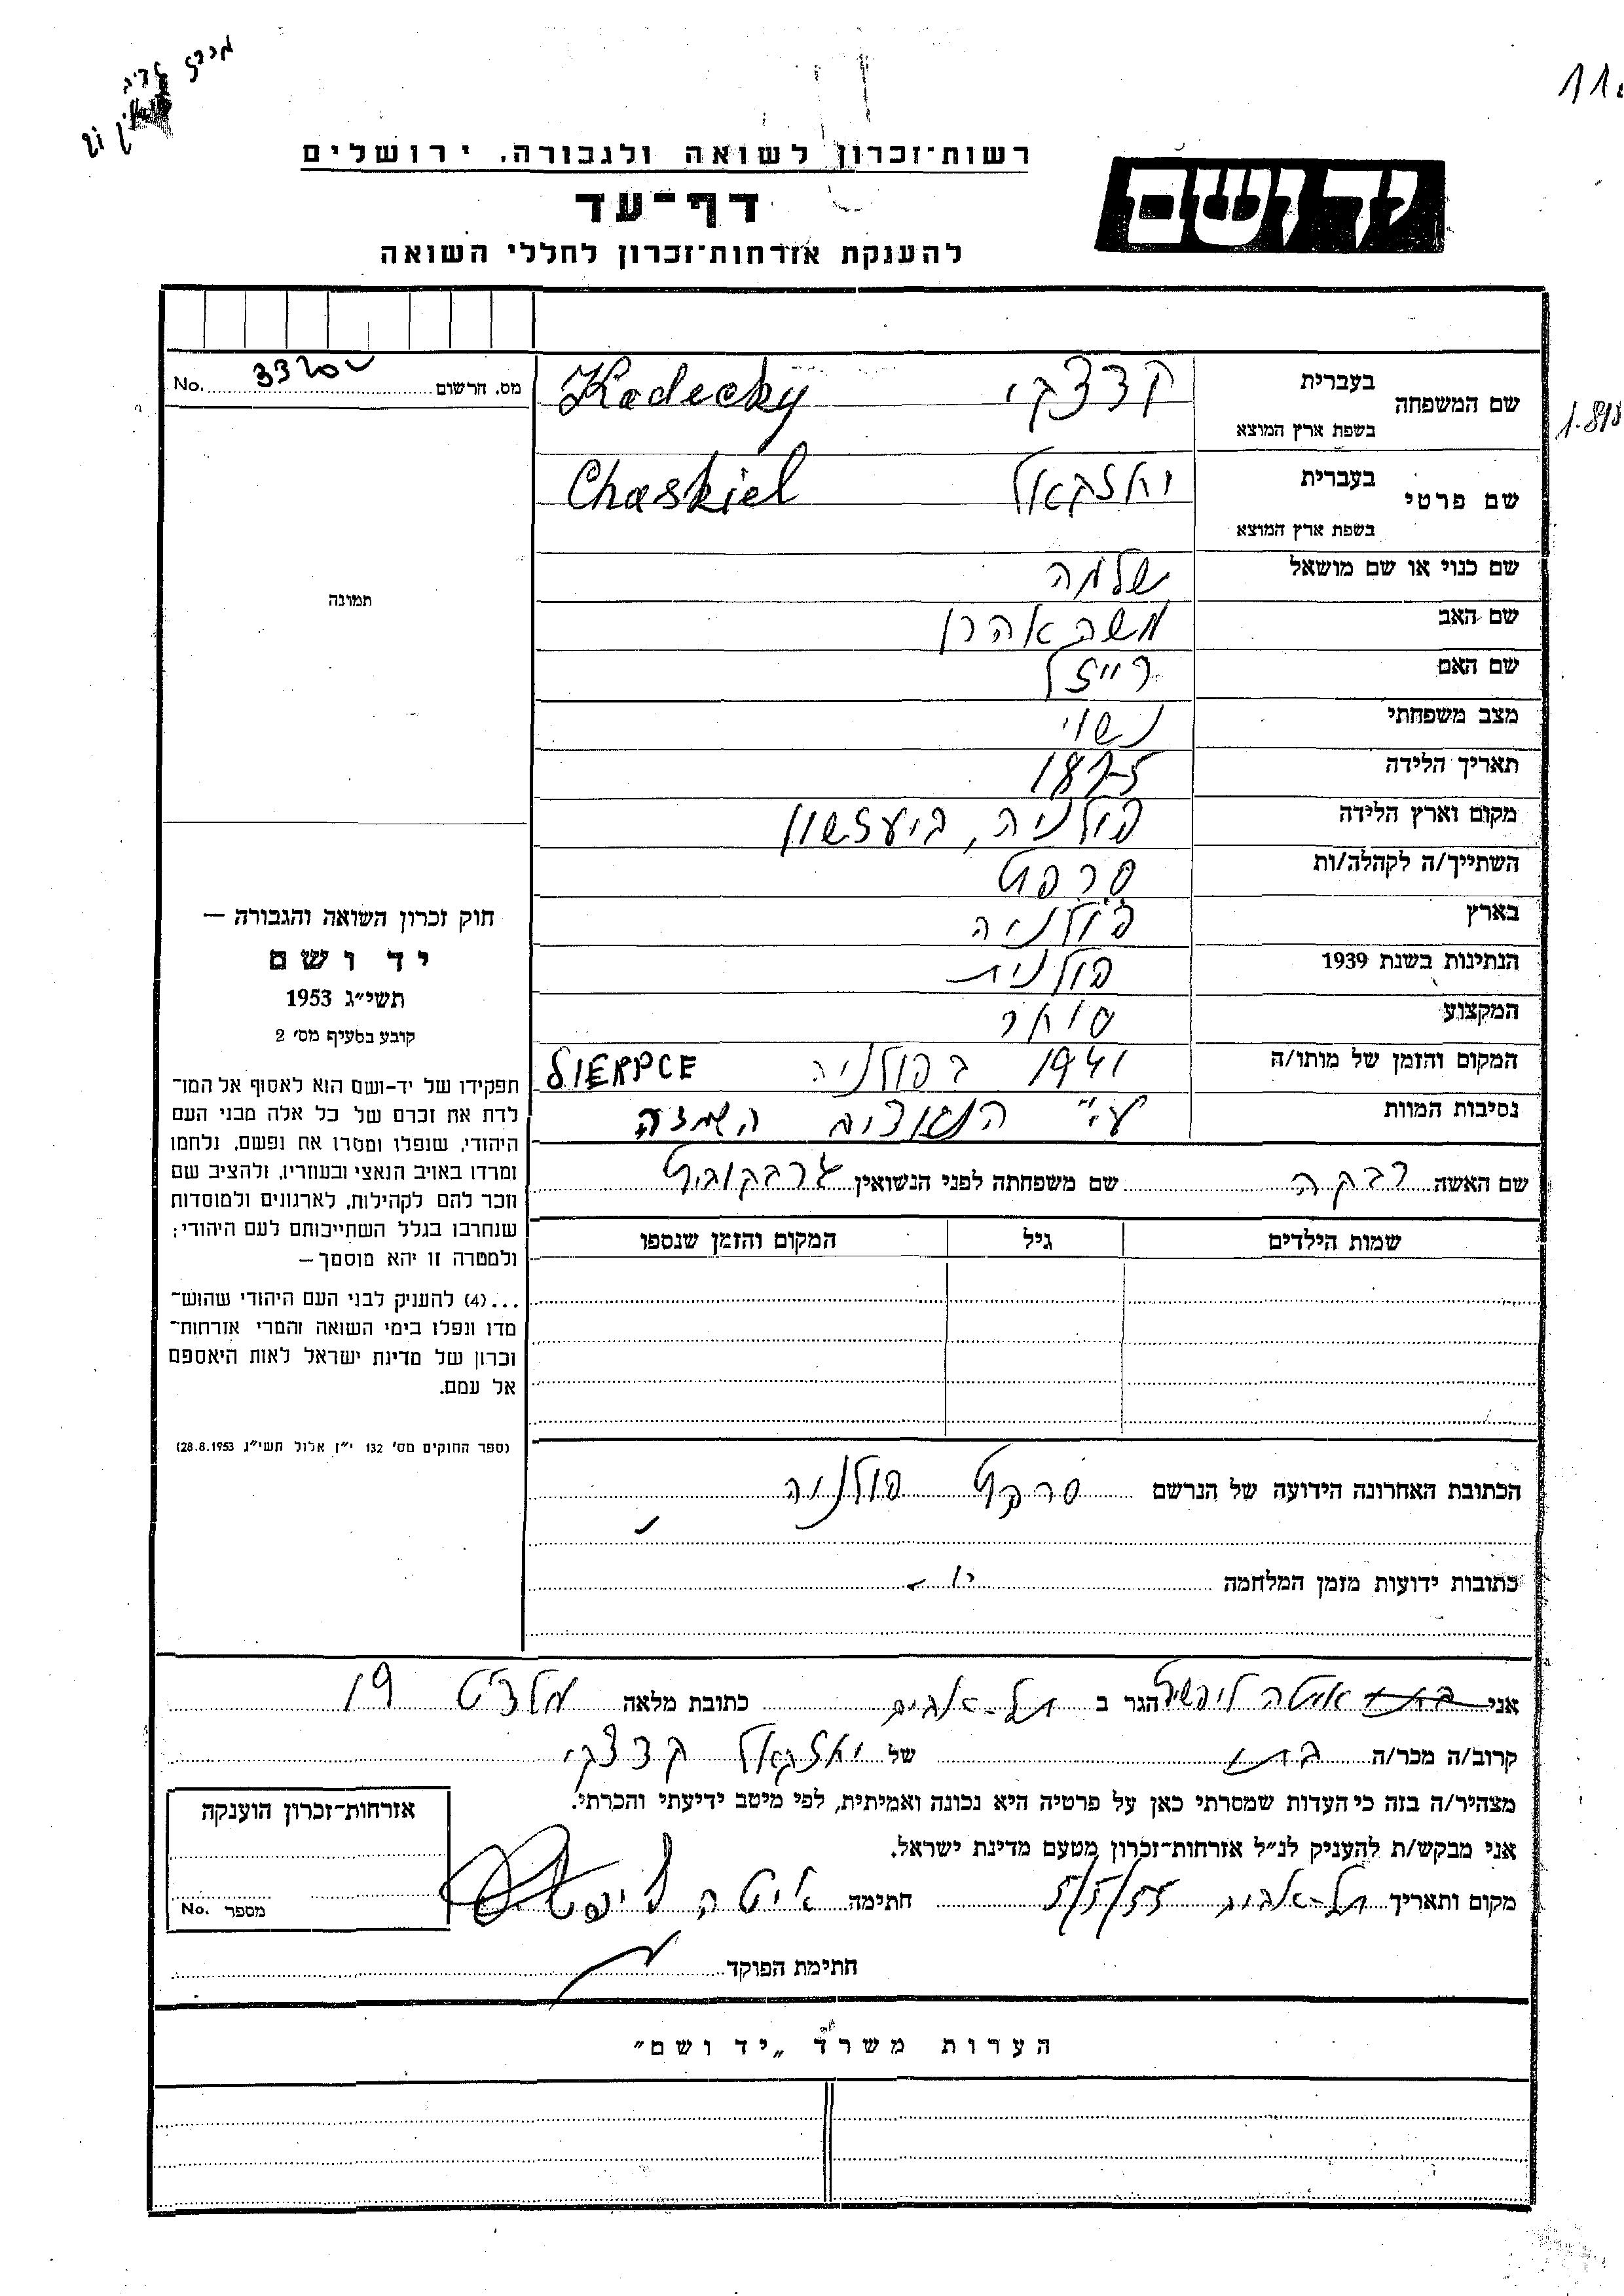 רשות־זכרון לשואה ולגבורה, ירושלים
יד ושם
דף־עד
להענקת אזרחות־זכרון לחללי השואה
מס. הרשום No.
שם המשפחה בעברית קדצקי
בשפת ארץ המוצא Kadecky
שם פרטי בעברית יחזקאל
בשפת ארץ המוצא Chaskiel
שם כנוי או שם מושאל שלמה
שם האב משה אהרן
שם האם רייזל
מצב משפחתי נשוי
תאריך הלידה 1875
מקום וארץ הלידה פולניה,
השתייך/ה לקהלה/ות סרפץ
בארץ פולניה
הנתינות בשנת 1939 פולנית
המקצוע סוחר
המקום והזמן של מותו/ה 1941 בפולניה SIERPCE
נסיבות המוות ע"י הנאצים
שם האשה רבקה שם משפחתה לפני הנשואין
שמות הילדים גיל המקום והזמן שנספו
הכתובת האחרונה הידועה של הנרשם סרפץ פולניה
כתובות ידועות מזמן המלחמה
תמונה
חוק זכרון השואה והגבורה —
יד ושם
תשי״ג 1953
קובע בסעיף מס׳ 2
תפקידו של יד-ושם הוא לאסוף אל המו־
לדת את זכרם של כל אלה מבני העם
היהודי, שנפלו ומסרו את נפשם, נלחמו
ומרדו באויב הנאצי ובעוזריו, ולהציב שם
וזכר להם לקהילות, לארגונים ולמוסדות
שנחרבו בגלל השתייכותם לעם היהודי;
ולמטרה זו יהא מוסמך —
...(4) להעניק לבני העם היהודי שהוש־
מדו ונפלו בימי השואה והמרי אזרחות־
זכרון של מדינת ישראל לאות היאספם
אל עמם.
(ספר החוקים מס׳ 132 י״ז אלול תשי״ג 28.8.1953)
אני איטה ליפשיץ הגר ב תל-אביב כתובת מלאה 19
קרוב/ה מכר/ה בתו של יחזקאל קדצקי
מצהיר/ה בזה כי העדות שמסרתי כאן על פרטיה היא נכונה ואמיתית, לפי מיטב ידיעתי והכרתי.
אני מבקש/ת להעניק לנ״ל אזרחות־זכרון מטעם מדינת ישראל.
מקום ותאריך תל-אביב 5/5/55 חתימה איטה ליפשיץ
חתימת הפוקד
אזרחות־זכרון הוענקה
מספר No.
הערות משרד „יד ושם״